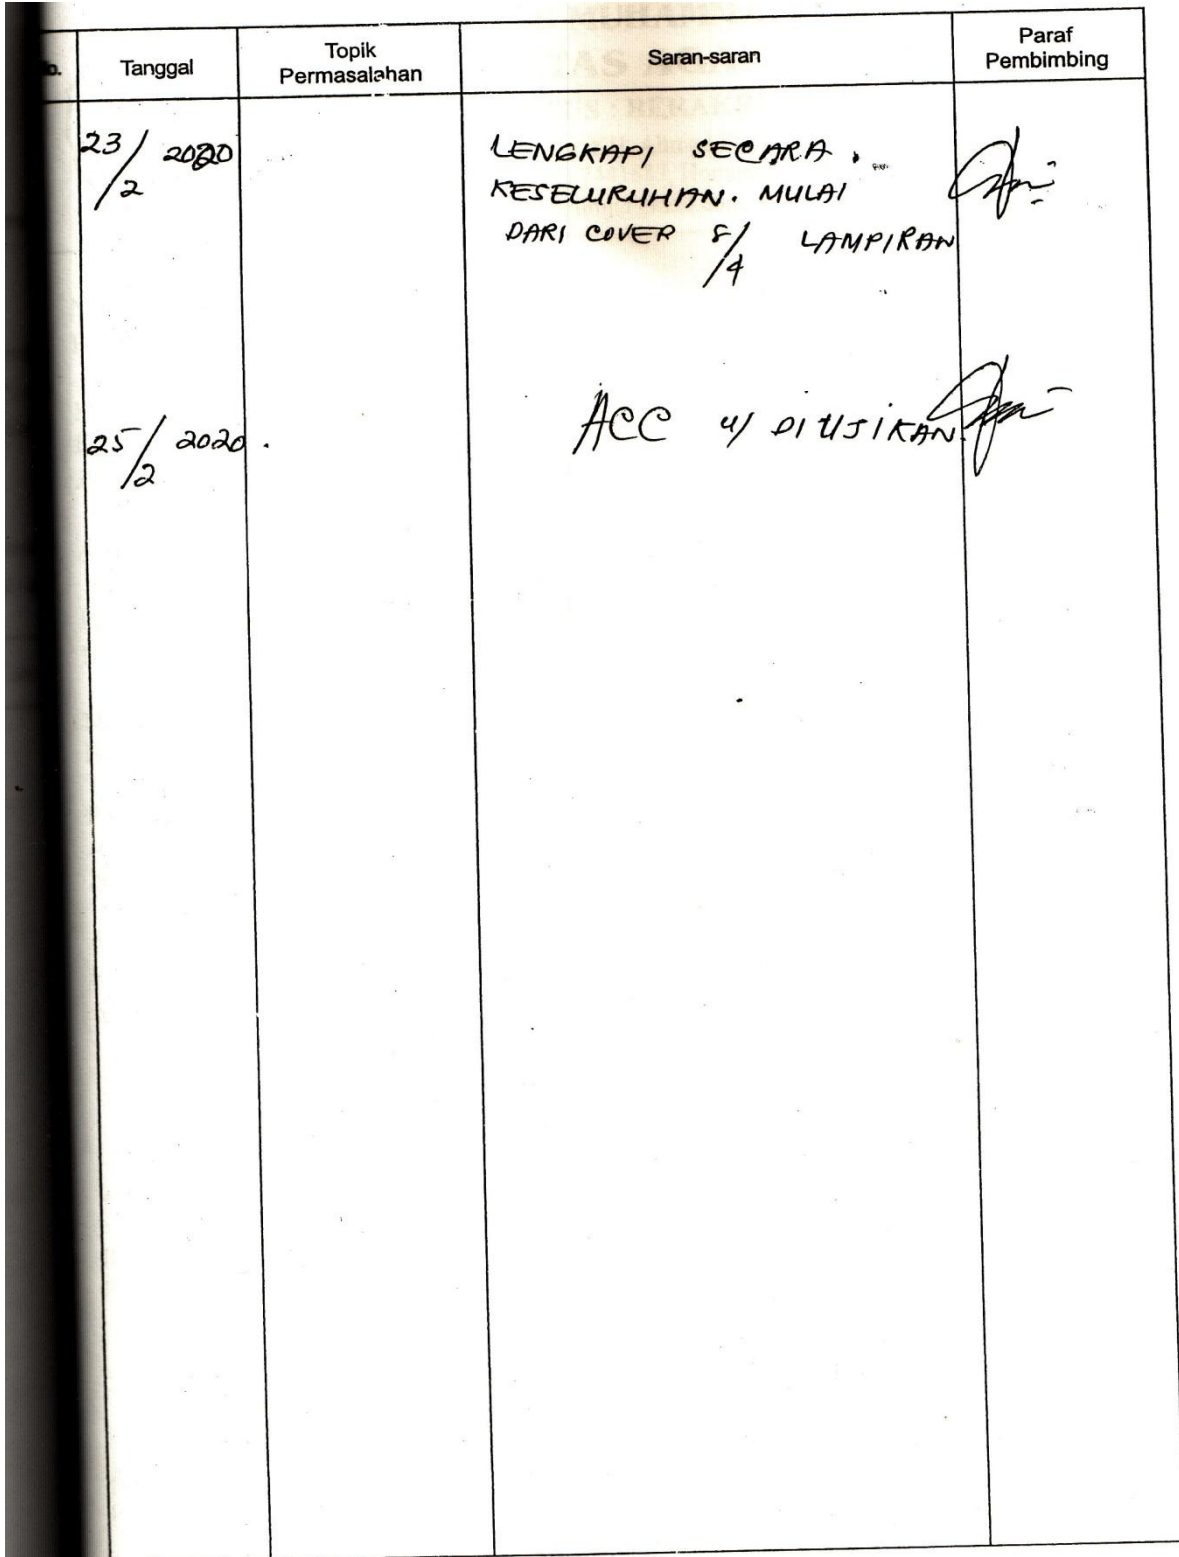 No. Tanggal Topik Permasalahan Saran-saran Paraf Pembimbing
23/2 2020 LENGKAPI SECARA
KESELURUHAN. MULAI
DARI COVER S/d LAMPIRAN
25/2 2020. ACC u/ DIUJIKAN.